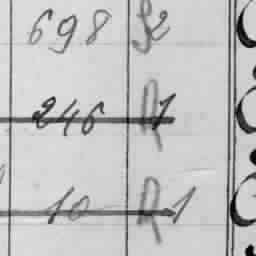 698 S2
246 R1
10 R1